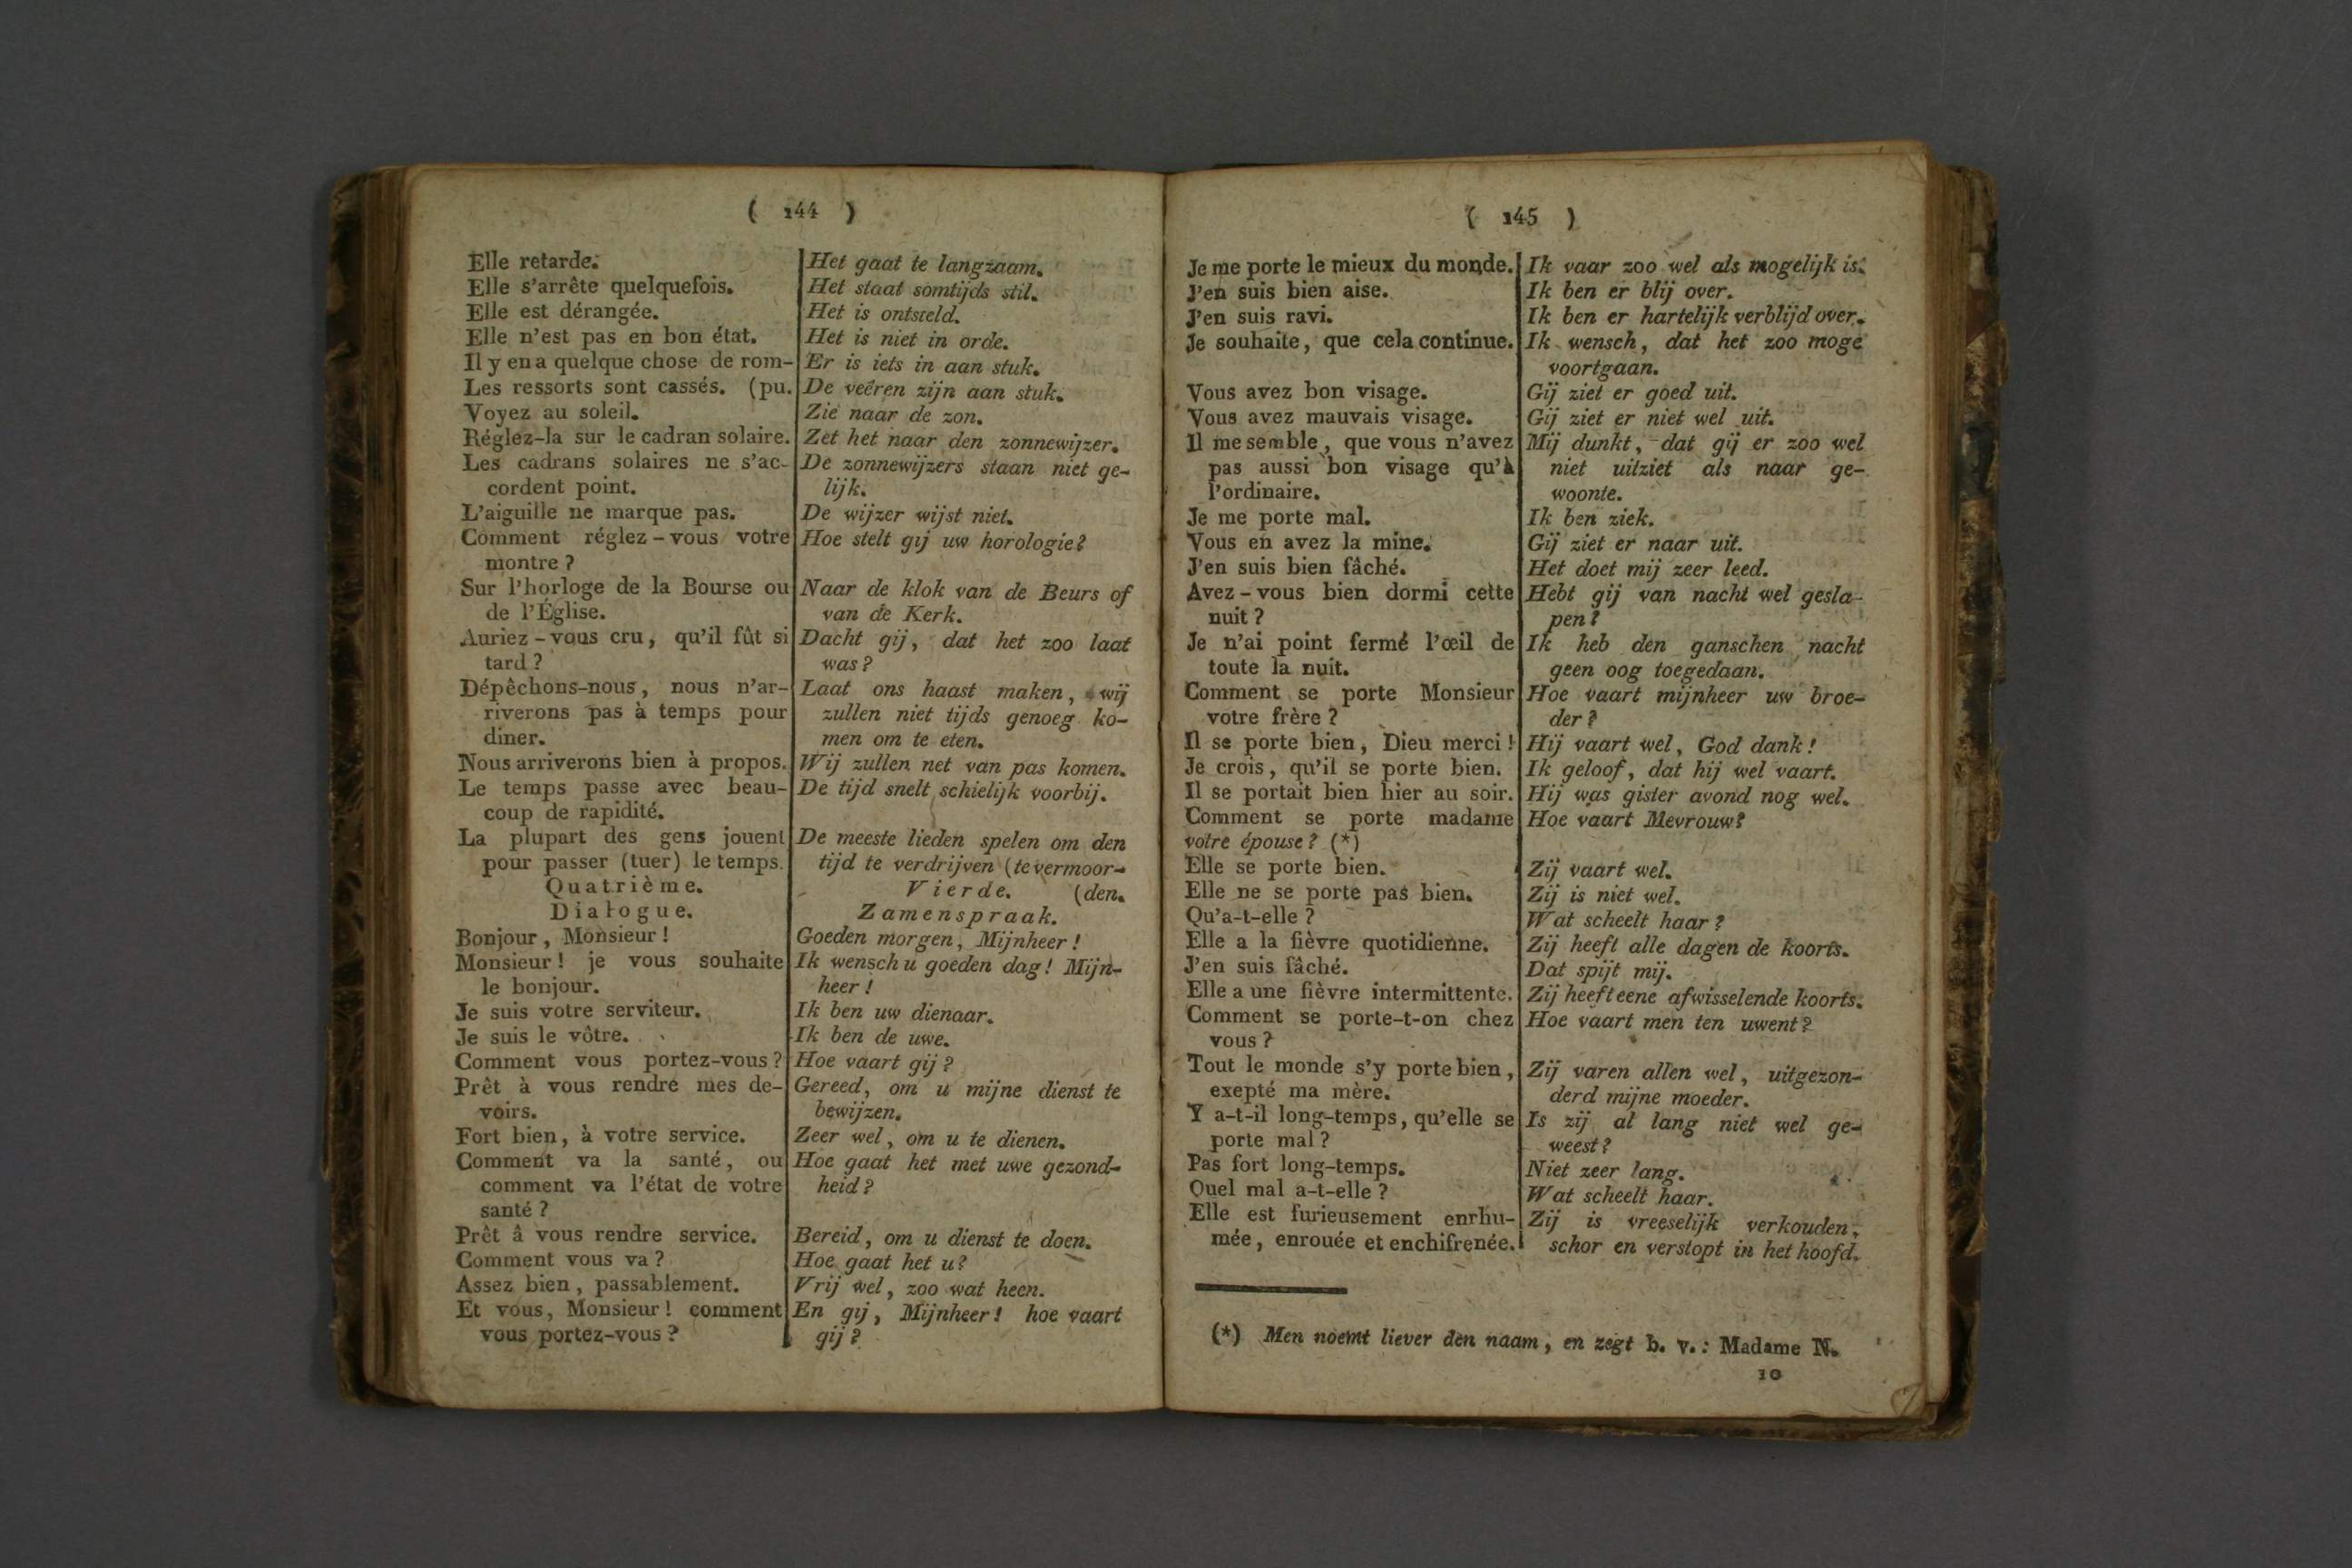 ( 144 )
Elle retarde.
Elle s'arrête quelquefois.
Elle est dérangée.
Elle n'est pas en bon état.
Il y en a quelque chose de rom-
Les ressorts sont cassés. (pu.
Voyez au soleil.
Réglez-la sur le cadran solaire.
Les cadrans solaires ne s'ac-
cordent point.
L'aiguille ne marque pas.
Comment réglez-vous votre
montre ?
Sur l'horloge de la Bourse ou
de l'Église.
Auriez-vous cru, qu'il fût si
tard ?
Dépêchons-nous, nous n'ar-
riverons pas à temps pour
diner.
Nous arriverons bien à propos.
Le temps passe avec beau-
coup de rapidité.
La plupart des gens jouent
pour passer (tuer) le temps.
Quatrième.
Dialogue.
Bonjour, Monsieur !
Monsieur ! je vous souhaite
le bonjour.
Je suis votre serviteur.
Je suis le vôtre.
Comment vous portez-vous ?
Prêt à vous rendre mes de-
voirs.
Fort bien, à votre service.
Comment va la santé, ou
comment va l'état de votre
santé ?
Prêt â vous rendre service.
Comment vous va ?
Assez bien, passablement.
Et vous, Monsieur ! comment
vous portez-vous ?
Het gaat te langzaam.
Het staat somtijds stil.
Het is ontsteld.
Het is niet in orde.
Er is iets in aan stuk.
De veêren zijn aan stuk.
Zie naar de zon.
Zet het naar den zonnewijzer.
De zonnewijzers staan niet ge-
lijk.
De wijzer wijst niet.
Hoe stelt gij uw horologie?
Naar de klok van de Beurs of
van de Kerk.
Dacht gij, dat het zoo laat
was ?
Laat ons haast maken, wij
zullen niet tijds genoeg ko-
men om te eten.
Wij zullen net van pas komen.
De tijd snelt schielijk voorbij.
De meeste lieden spelen om den
tijd te verdrijven (te vermoor-
Vierde. (den.
Zamenspraak.
Goeden morgen, Mijnheer !
Ik wensch u goeden dag ! Mijn-
heer !
Ik ben uw dienaar.
Ik ben de uwe.
Hoe vaart gij ?
Gereed, om u mijne dienst te
bewijzen.
Zeer wel, om u te dienen.
Hoe gaat het met uwe gezond-
heid ?
Bereid, om u dienst te doen.
Hoe gaat het u?
Vrij wel, zoo wat heen.
En gij, Mijnheer ! hoe vaart
gij ?
( 145 )
Je me porte le mieux du monde.
J'en suis bien aise.
J'en suis ravi.
Je souhaite, que cela continue.
Vous avez bon visage.
Vous avez mauvais visage.
Il me semble, que vous n'avez
pas aussi bon visage qu'à
l'ordinaire.
Je me porte mal.
Vous en avez la mine.
J'en suis bien fâché.
Avez-vous bien dormi cette
nuit ?
Je n'ai point fermé l'œil de
toute la nuit.
Comment se porte Monsieur
votre frère ?
Il se porte bien, Dieu merci !
Je crois, qu'il se porte bien.
Il se portait bien hier au soir.
Comment se porte madame
votre épouse ? (*)
Elle se porte bien.
Elle ne se porte pas bien.
Qu'a-t-elle ?
Elle a la fièvre quotidienne.
J'en suis fâché.
Elle a une fièvre intermittente.
Comment se porte-t-on chez
vous ?
Tout le monde s'y porte bien,
exepté ma mère.
Y a-t-il long-temps, qu'elle se
porte mal ?
Pas fort long-temps.
Quel mal a-t-elle ?
Elle est furieusement enrhu-
mée, enrouée et enchifrenée.
Ik vaar zoo wel als mogelijk is.
Ik ben er blij over.
Ik ben er hartelijk verblijd over.
Ik wensch, dat het zoo moge
voortgaan.
Gij ziet er goed uit.
Gij ziet er niet wel uit.
Mij dunkt, dat gij er zoo wel
niet uitziet als naar ge-
woonte.
Ik ben ziek.
Gij ziet er naar uit.
Het doet mij zeer leed.
Hebt gij van nacht wel gesla-
pen ?
Ik heb den ganschen nacht
geen oog toegedaan.
Hoe vaart mijnheer uw broe-
der ?
Hij vaart wel, God dank !
Ik geloof, dat hij wel vaart.
Hij was gister avond nog wel.
Hoe vaart Mevrouw?
Zij vaart wel.
Zij is niet wel.
Wat scheelt haar ?
Zij heeft alle dagen de koorts.
Dat spijt mij.
Zij heeft eene afwisselende koorts.
Hoe vaart men ten uwent?
Zij varen allen wel, uitgezon-
derd mijne moeder.
Is zij al lang niet wel ge-
weest ?
Niet zeer lang.
Wat scheelt haar.
Zij is vreeselijk verkouden,
schor en verstopt in het hoofd.
(*) Men noemt liever den naam, en zegt b. v. : Madame N.
10